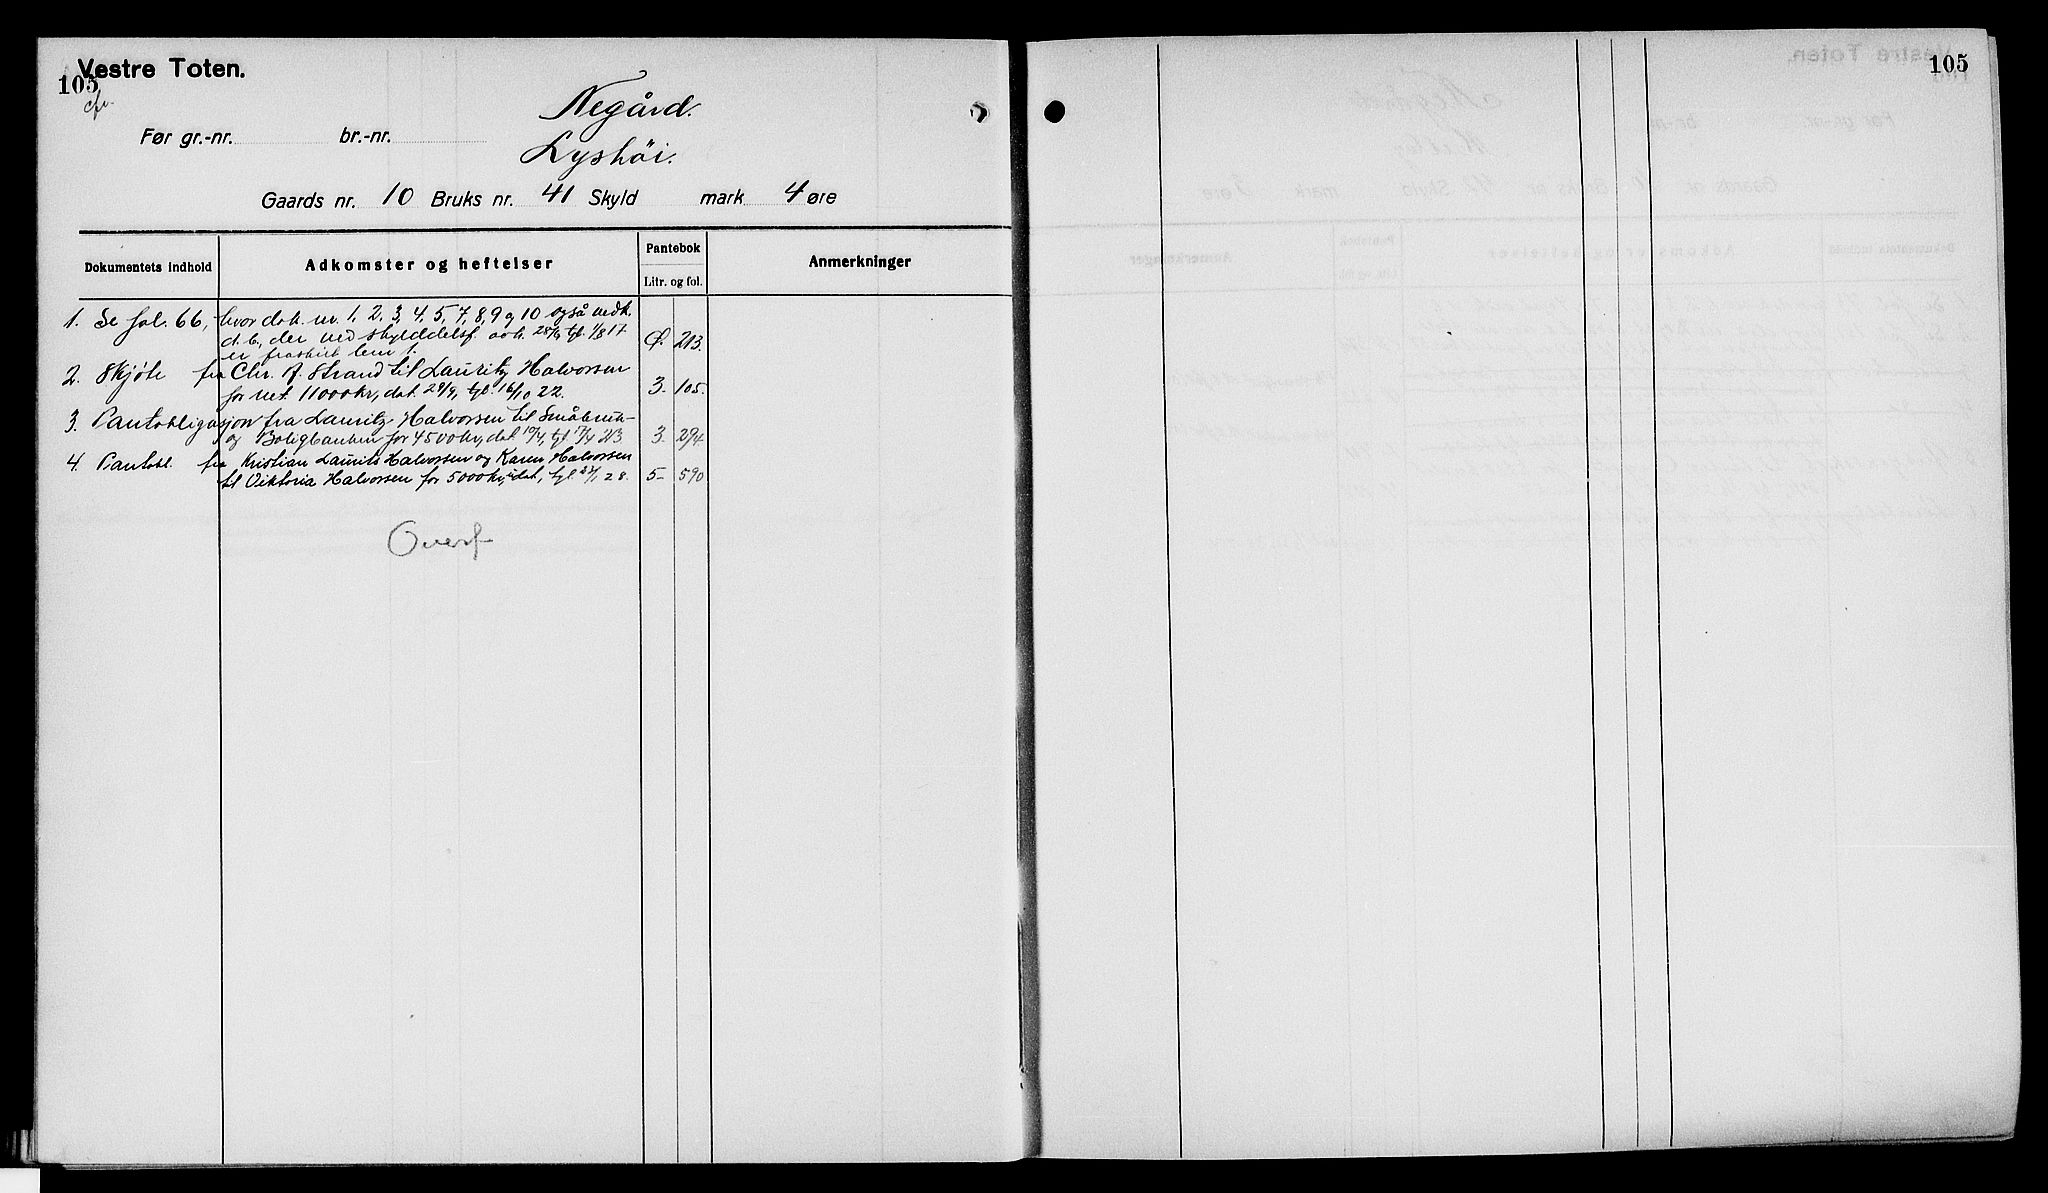 Vestre Toten.
105
cfr.
Negård.
Før gr.-nr. br.-nr.
Lyshöi.
Gaards nr. 10 Bruks nr. 41 Skyld mark 4 øre
Dokumentets indhold Adkomster og heftelser Pantebok Litr. og fol. Anmerkninger
1. Se fol. 66, hvor dok. nr. 1, 2, 3, 4, 5, 7, 8, 9 og 10 også vedk.
d. b., der ved skylddelsf. avh. 28/4 tgl. 1/8 17
er fraskilt 1. Q. 213.
2. Skjöte fra Chr. A. Strand til Lauritz Halvorsen
for 11000 kr, dat. 29/9, tgl. 16/10 22. 3. 105.
3. Pantobligasjon fra Lauritz Halvorsen til Småbruk-
og Boligbanken for 4500 kr, dat. 10/4, tgl. 17/4 23 3. 294.
4. Pantobl. fra Kristian Laurits Halvorsen og Karen Halvorsen
til Viktoria Halvorsen for 5000 kr, dat., tgl. 27/1 28. 5- 590
Overf
105